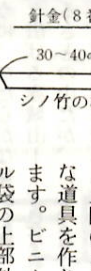 針金(8番
30〜40c
シノ竹の
な道具を作
ます。ビニ
ル袋の上部